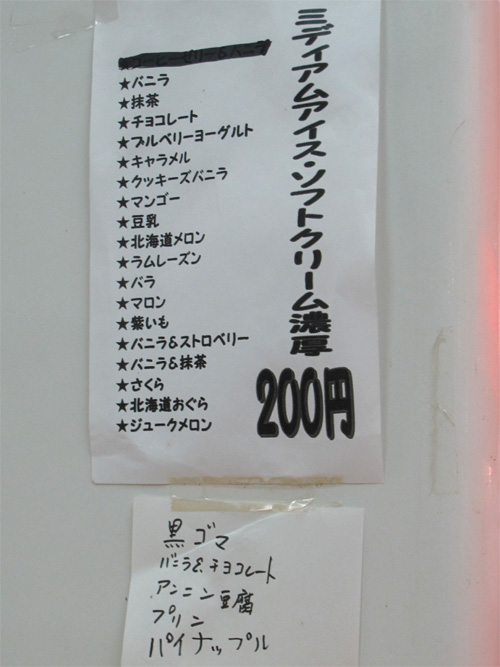 ミディアムアイス・ソフトクリーム濃厚
200円
★コーヒーゼリー&バニラ
★バニラ
★抹茶
★チョコレート
★ブルベリーヨーグルト
★キャラメル
★クッキーズバニラ
★マンゴー
★豆乳
★北海道メロン
★ラムレーズン
★バラ
★マロン
★紫いも
★バニラ&ストロベリー
★バニラ&抹茶
★さくら
★北海道おぐら
★ジュークメロン
黒ゴマ
バニラ&チョコレート
アンニン豆腐
プリン
パイナップル